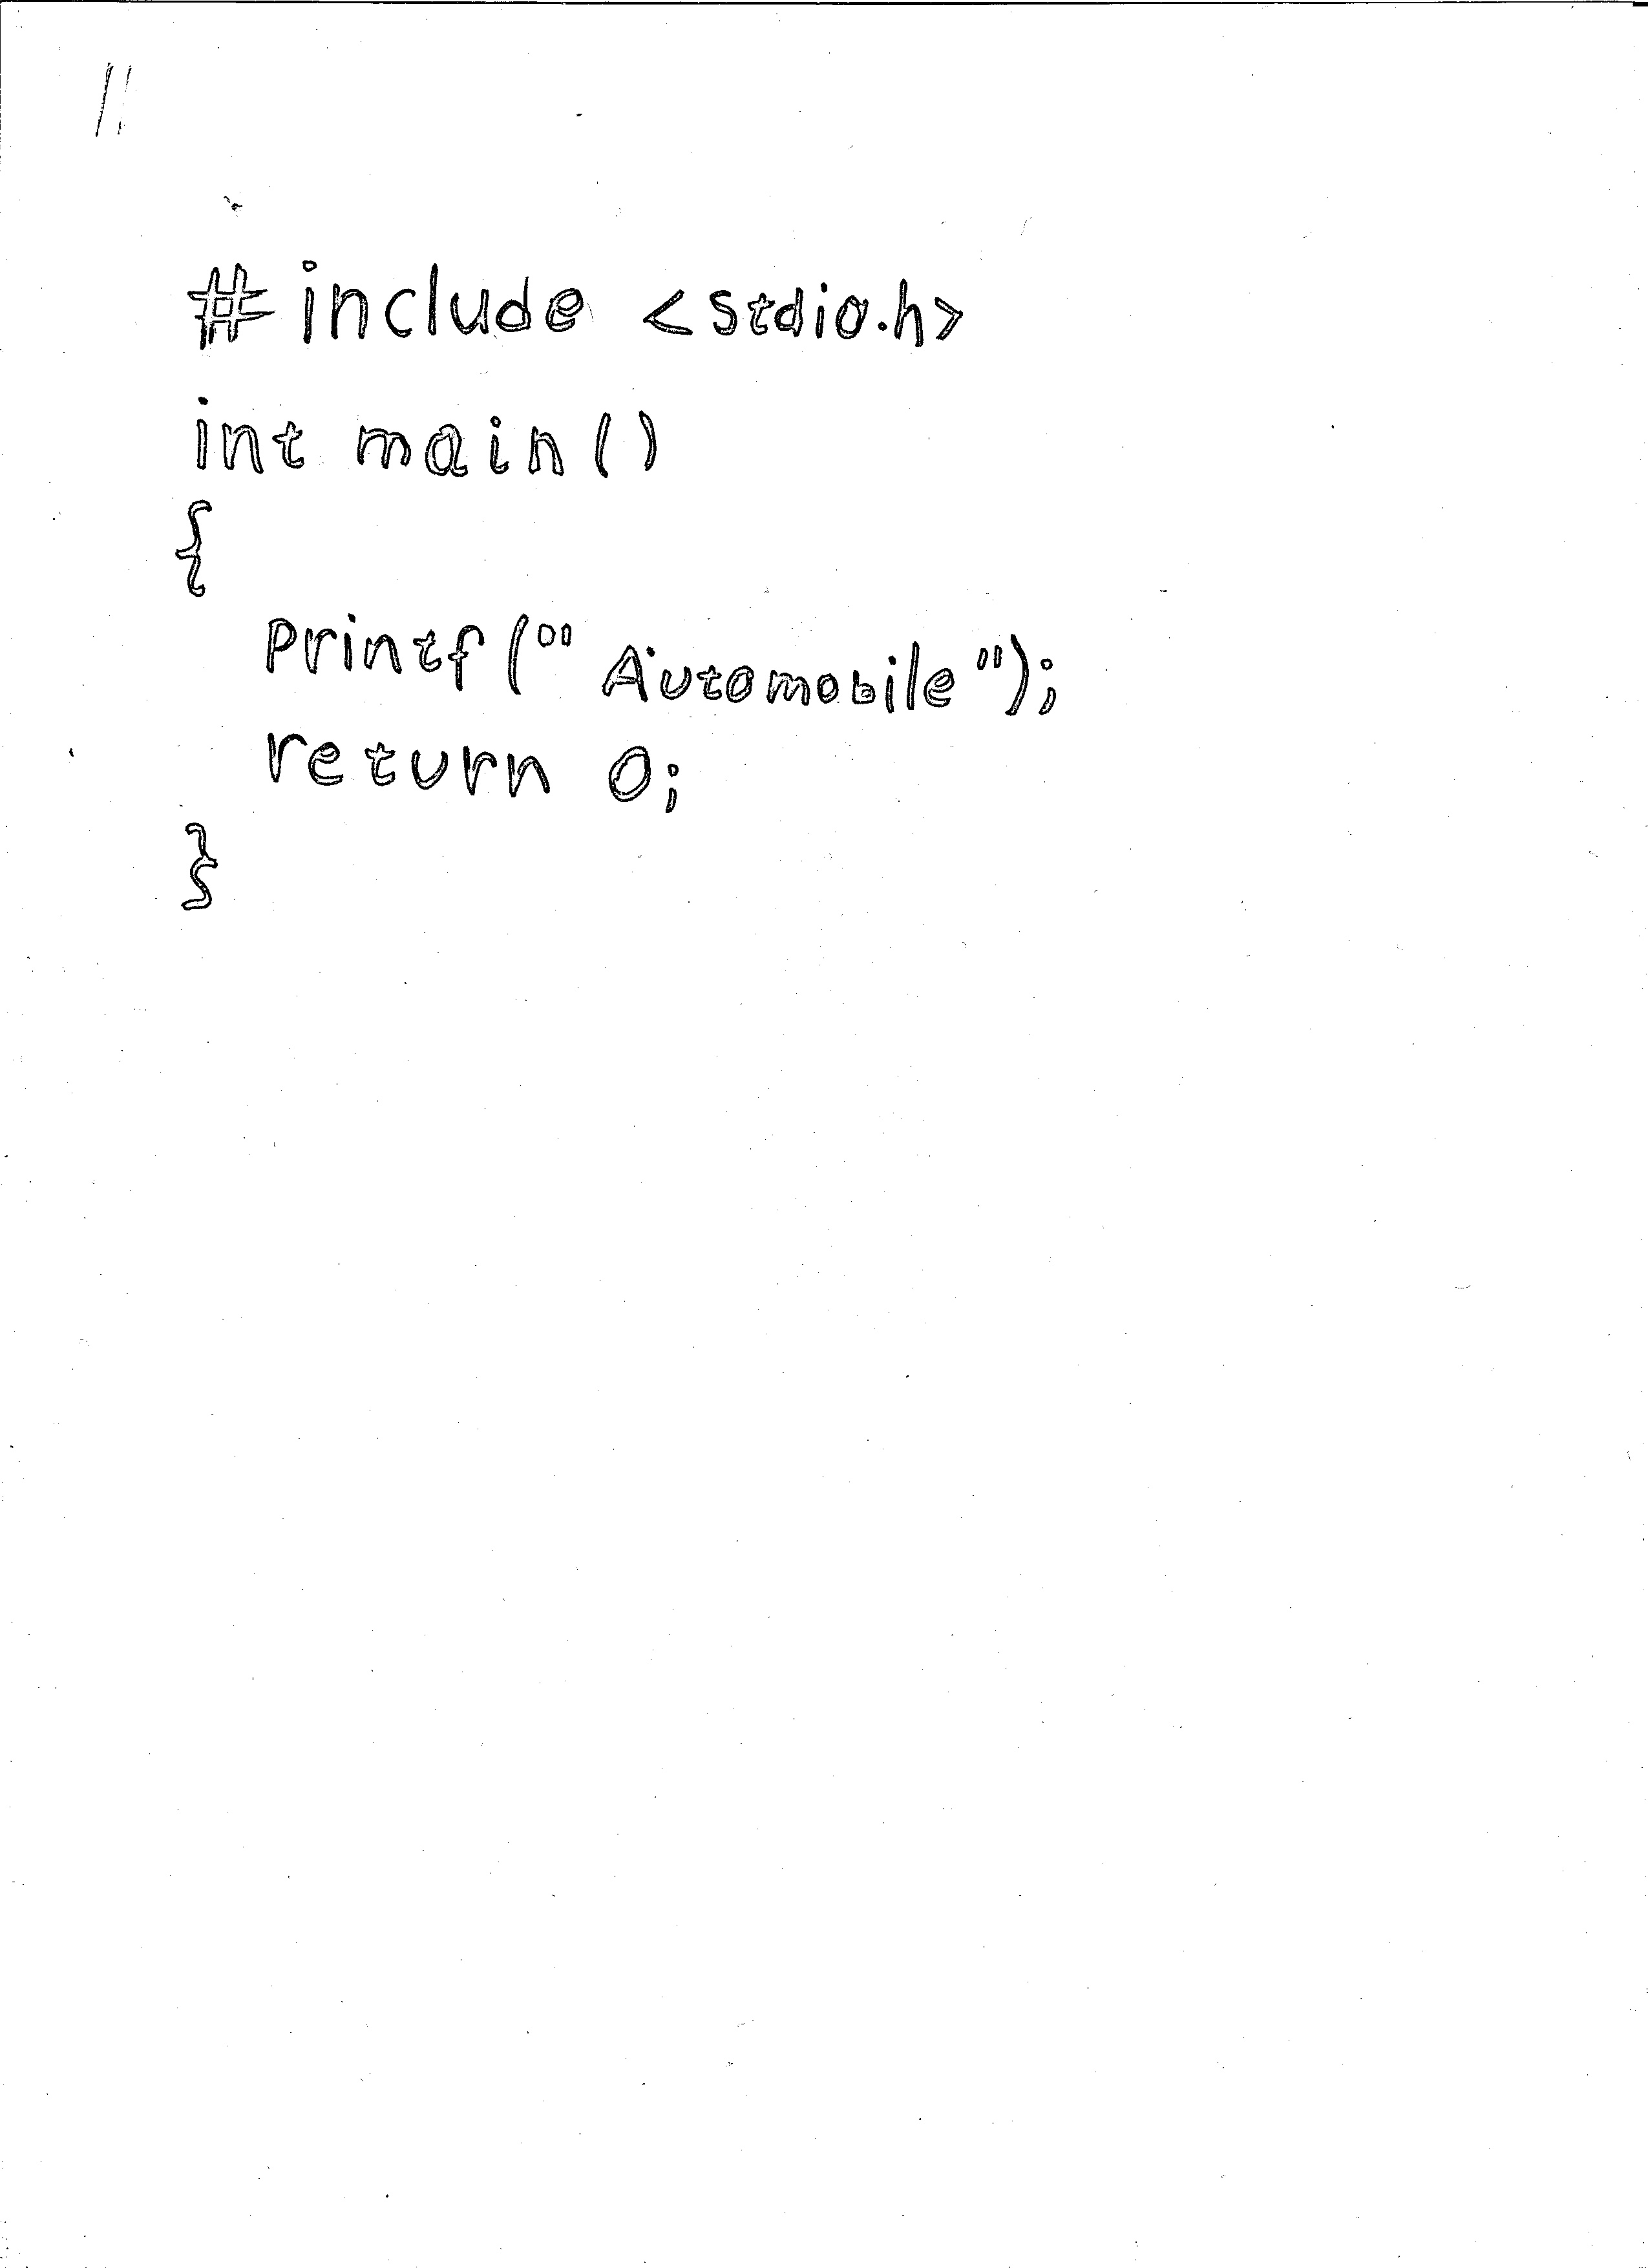 #include <stdio.h>
int main()
{
printf("Automobile");
return 0;
}